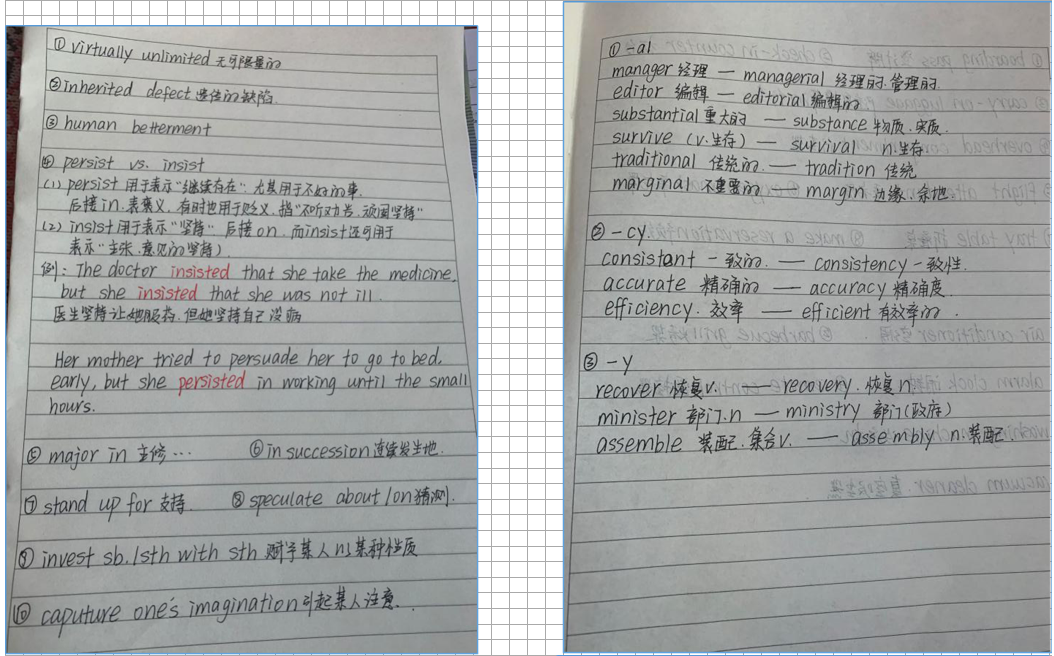 ① virtually unlimited 无可限量的
② inherited defect 遗传的缺陷.
③ human betterment
④ persist vs. insist
(1) persist 用于表示“继续存在”尤其用于不好的事.
后接in.表褒义,有时也用于贬义,指“不听劝告,顽固坚持”
(2) insist 用于表示“坚持” 后接on. 而insist还可用于
表示“主张、意见的坚持)
例: The doctor insisted that she take the medicine,
but she insisted that she was not ill.
医生坚持让她服药,但她坚持自己没病
Her mother tried to persuade her to go to bed.
early, but she persisted in working until the small
hours.
⑤ major in 主修… ⑥ in succession 连续发生地.
⑦ stand up for 支持. ⑧ speculate about/on 猜测.
⑨ invest sb./sth with sth 赋予某人ns某种性质
⑩ caputure one's imagination 引起某人注意.
① -al
manager 经理 — managerial 经理的.管理的.
editor 编辑 — editorial 编辑的
substantial 重大的 — substance 物质.实质.
survive (v.生存) — survival n.生存
traditional 传统的. — tradition 传统
marginal 不重要的 — margin 边缘.余地.
② -cy.
consistant 一致的. — consistency 一致性.
accurate 精确的 — accuracy 精确度.
efficiency. 效率 — efficient 有效率的.
③ -y
recover 恢复v. — recovery. 恢复n
minister 部门.n — ministry 部门(政府)
assemble 装配.集合v. — assembly n.装配